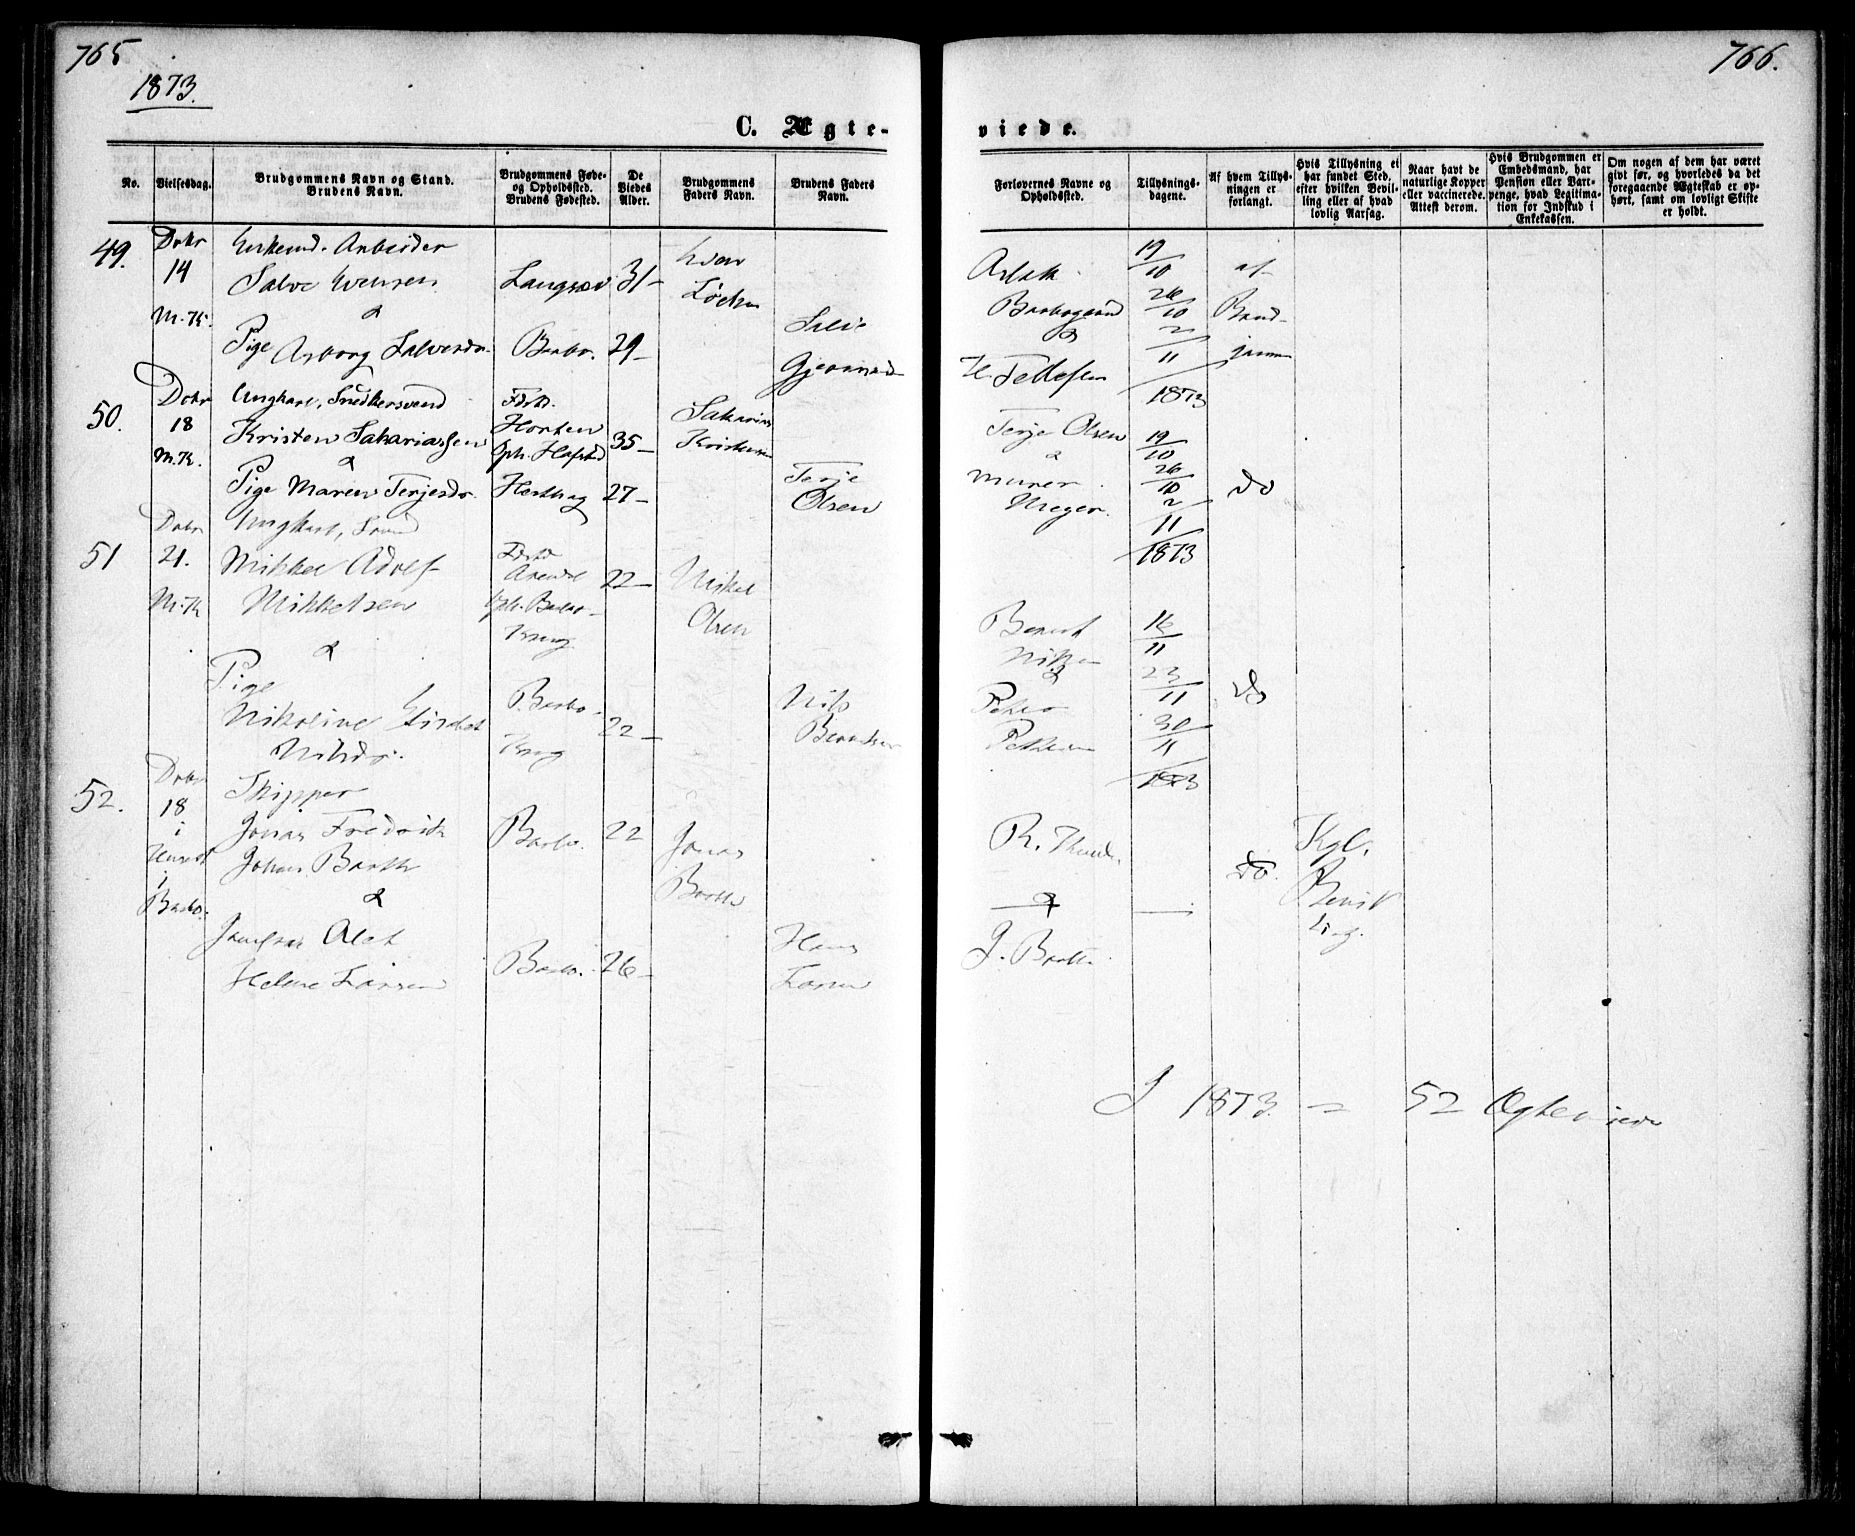 765
1873.
766.
C. Ægte-
viede.
No.
Vielsesdag.
Brudgommens Navn og Stand.
Brudens Navn.
Brudgommens Føde-
og Opholdssted.
Brudens Fødested.
De
Viedes
Alder.
Brudgommens
Faders Navn.
Brudens Faders
Navn.
Forlovernes Navne og
Opholdssted.
Tillysnings-
dagene.
Af hvem Tillys-
ningen er
forlangt.
Hvis Tillysning ei
har fundet Sted,
efter hvilken Bevil-
ling eller af hvad
lovlig Aarsag.
Naar havt de
naturlige Kopper
eller vaccinerede.
Attest derom.
Hvis Brudgommen er
Embedsmand, har
Pension eller Vart-
penge, hvad Legitima-
tion for Indskud i
Enkekassen.
Om nogen af dem har været
givt før, og hvorledes da det
foregaaende Ægteskab er op-
hørt, samt om lovligt Skifte
er holdt.
49.
Debr
14
M.K.
Arbeider
Salve Evensen
&
Pige Asborg Salvesdr.
Langsæv
Barbo.
31-
29-
Even
Salve
Gjermund
&
H. Tellefsen
19/10
26/10
2/11
1873
af
Brud-
gommen
50.
Debr
18
M.K.
Ungkarl, Snedkersvend
Kristen Sakariassen
&
Pige Maren Terjesdr.
Fdst.
Horten
35-
27-
Sakarias
Kristensen
Terje
Olsen
Terje Olsen
&
murer
19/10
26/10
2/11
1873
do
51
Debr
21.
M.K
Ungkarl,
Mikkel Adolf
Mikkelsen
&
Pige
Nikoline
Nilsdr.
Fdst
Arendal
Oph. Barbo
Barbo.
22-
22-
Mikkel
Olsen
Nils
Berntsen
Berent
Nilsen
&
Peder
Pettersen
16/11
23/11
30/11
1873
do
52.
Debr
18
i
Huset
i
Barbo.
Skipper
Jonas Fredrik
Johan Barth
&
Jomfru Alet
Helene Larsen
Barbo.
Barbo.
22
26-
Jonas
Barth
Hans
Larsen
&
J. Barth
do.
Kgl.
Bevil
ling.
I 1873 = 52 Ægteviede